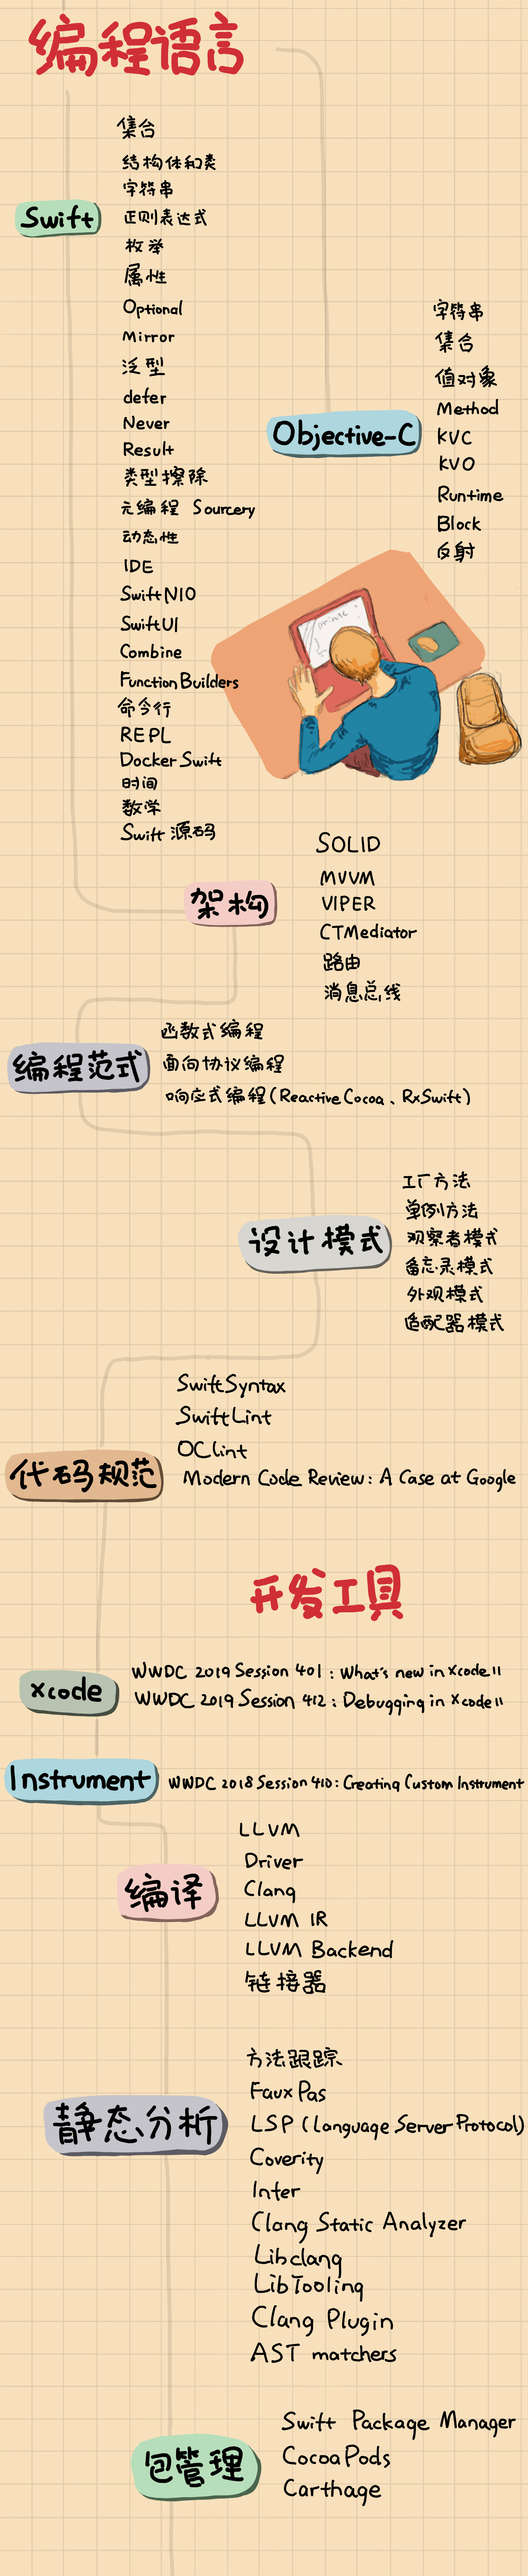 编程语言
Swift
集合
结构体和类
字符串
正则表达式
枚举
属性
Optional
Mirror
泛型
defer
Never
Result
类型擦除
元编程 Sourcery
动态性
IDE
SwiftNIO
SwiftUI
Combine
Function Builders
命令行
REPL
Docker Swift
时间
数学
Swift 源码
Objective-C
字符串
集合
值对象
Method
KVC
KVO
Runtime
Block
反射
架构
SOLID
MVVM
VIPER
CTMediator
路由
消息总线
编程范式
函数式编程
面向协议编程
响应式编程(Reactive Cocoa、RxSwift)
设计模式
工厂方法
单例方法
观察者模式
备忘录模式
外观模式
适配器模式
代码规范
SwiftSyntax
SwiftLint
OCLint
Modern Code Review: A Case at Google
开发工具
xcode
WWDC 2019 Session 401 : What's new in Xcode 11
WWDC 2019 Session 412 : Debugging in Xcode 11
Instrument
WWDC 2018 Session 410: Creating Custom Instrument
编译
LLVM
Driver
Clang
LLVM IR
LLVM Backend
链接器
静态分析
方法跟踪
Faux Pas
LSP (Language Server Protocol)
Coverity
Infer
Clang Static Analyzer
Libclang
LibTooling
Clang Plugin
AST matchers
包管理
Swift Package Manager
CocoaPods
Carthage